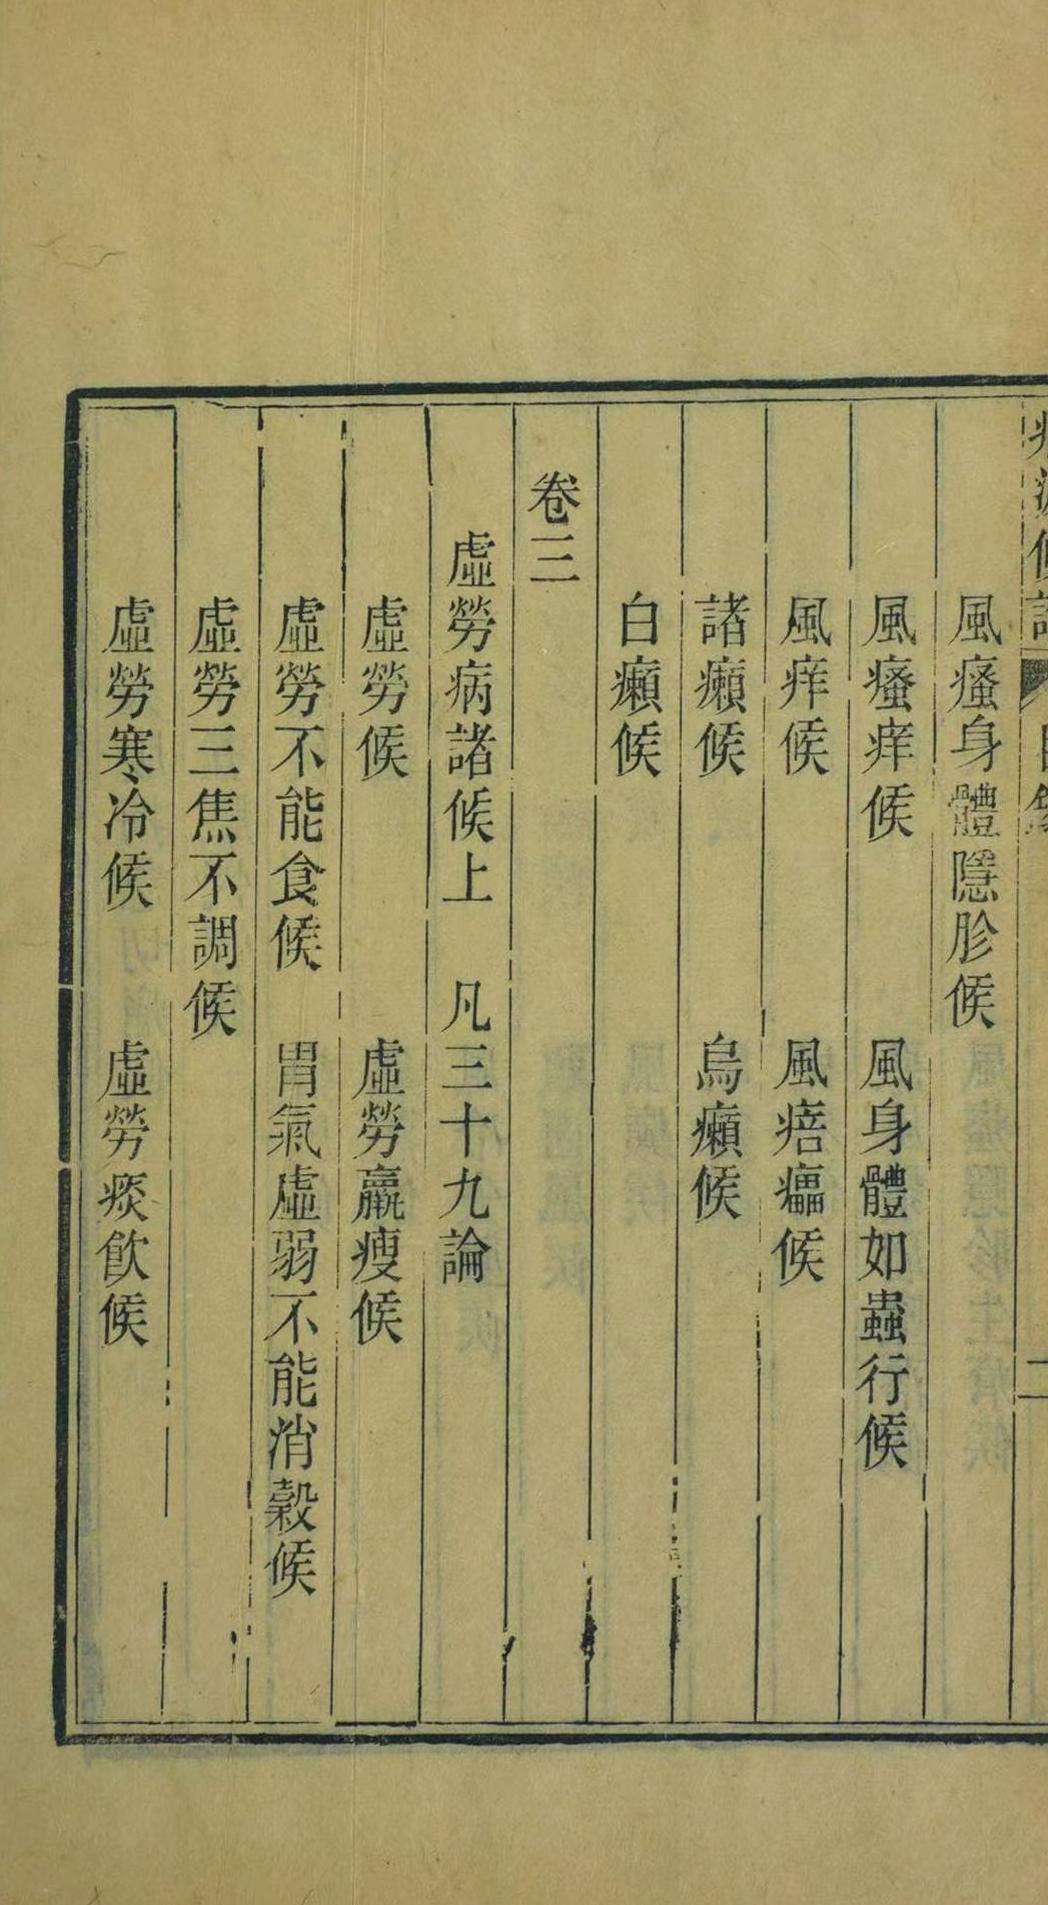 風瘙身體隱胗候
風瘙痒候 風身體如蟲行候
風痒候 風㾦㿔候
諸癩候 烏癩候
白癩候
卷三
虛勞病諸候上 凡三十九論
虛勞候 虛勞羸瘦候
虛勞不能食候 胃氣虛弱不能消穀候
虛勞三焦不調候
虛勞寒冷候 虛勞痰飲候